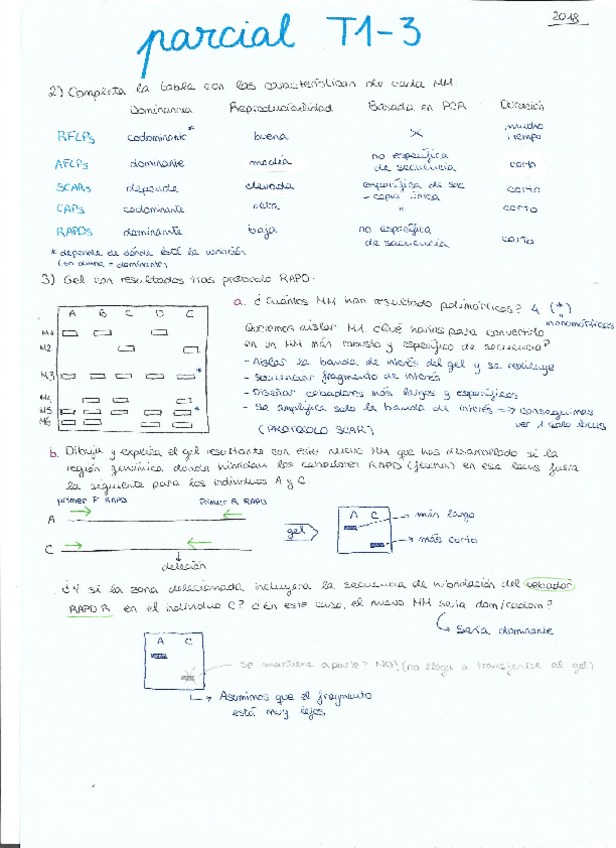 2018
parcial T1-3
2) Completa la tabla con las características de cada MM.
Dominancia Reproducibilidad Basada en PCR Duración
RFLPs codominante* buena X mucho tiempo
AFLPs dominante media no específica de secuencia corto
SCARs depende elevada específica de sec - copia única corto
CAPs codominante " corto
RAPDs dominante baja no específica de secuencia corto
* depende de dónde está la variación
3) Gel con resultados tras protocolo RAPD.
A B C D E
M1
M2
M3 *
M4
M5 *
M6
a. ¿Cuántos MM han resultado polimórficos? 4 (*)
monomórficos
Queremos aislar M1. ¿Qué harías para convertirlo
en un MM más robusto y específico de secuencia?
- Aislar la banda de interés del gel y se
- Secuenciar fragmento de interés
- Diseñar cebadores más largos y específicos
- Se amplifica solo la banda de interés => conseguimos
ver 1 solo locus
(PROTOCOLO SCAR)
b. Dibuja y explica el gel resultante con este nuevo MM que has desarrollado si la
región genómica donde hibridan los cebadores RAPD (flecha) en ese locus fuera
la siguiente para los individuos A y C.
primer F RAPD Primer R RAPD
A
C
deleción
gel
A C
más largo
más corto
¿Y si la zona delecionada incluyera la secuencia de hibridación del cebador
RAPD R en el individuo C? ¿En este caso, el nuevo MM sería dom/codom?
Sería dominante
A C
se mantiene aparte? NO! (no llega a transferirse al gel)
Asumimos que el fragmento
está muy lejos